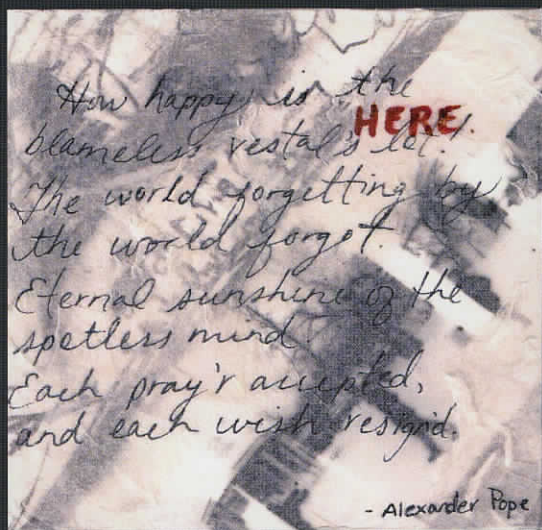 How happy is the
HERE.
blameless vestal's lot!
The world forgetting by
the world forgot.
Eternal sunshine of the
spotless mind!
Each pray'r accepted,
and each wish resign'd.
- Alexander Pope